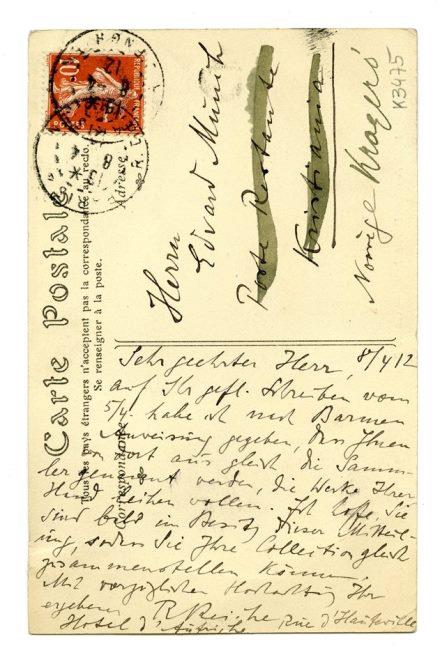 K3475
Carte Postale
Tous les pays étrangers n'acceptent pas la correspondance au recto.
Se renseigner à la poste.
Correspondance
Adresse
REPUBLIQUE FRANÇAISE
10
POSTES
Herrn
Edvard Munch
Poste Restante
Kristiania
Norvège Kragerö
Sehr geehrter Herr, 8/4 12
auf Ihr gefl. Schreiben vom
5/4. habe ich nach Barmen
Anweisung gegeben, dass Ihnen
von dort aus gleich die Samm-
ler genannt werden, die Werke Ihrer
Hand leihen wollen. Ich hoffe, Sie
sind bald im Besitz dieser Mitteil-
ung, sodass Sie Ihre Collection gleich
zusammenstellen können.
Mit vorzüglicher Hochachtung Ihr
ergebener R Reiche
Hotel d'Autriche Rue d'Hauteville